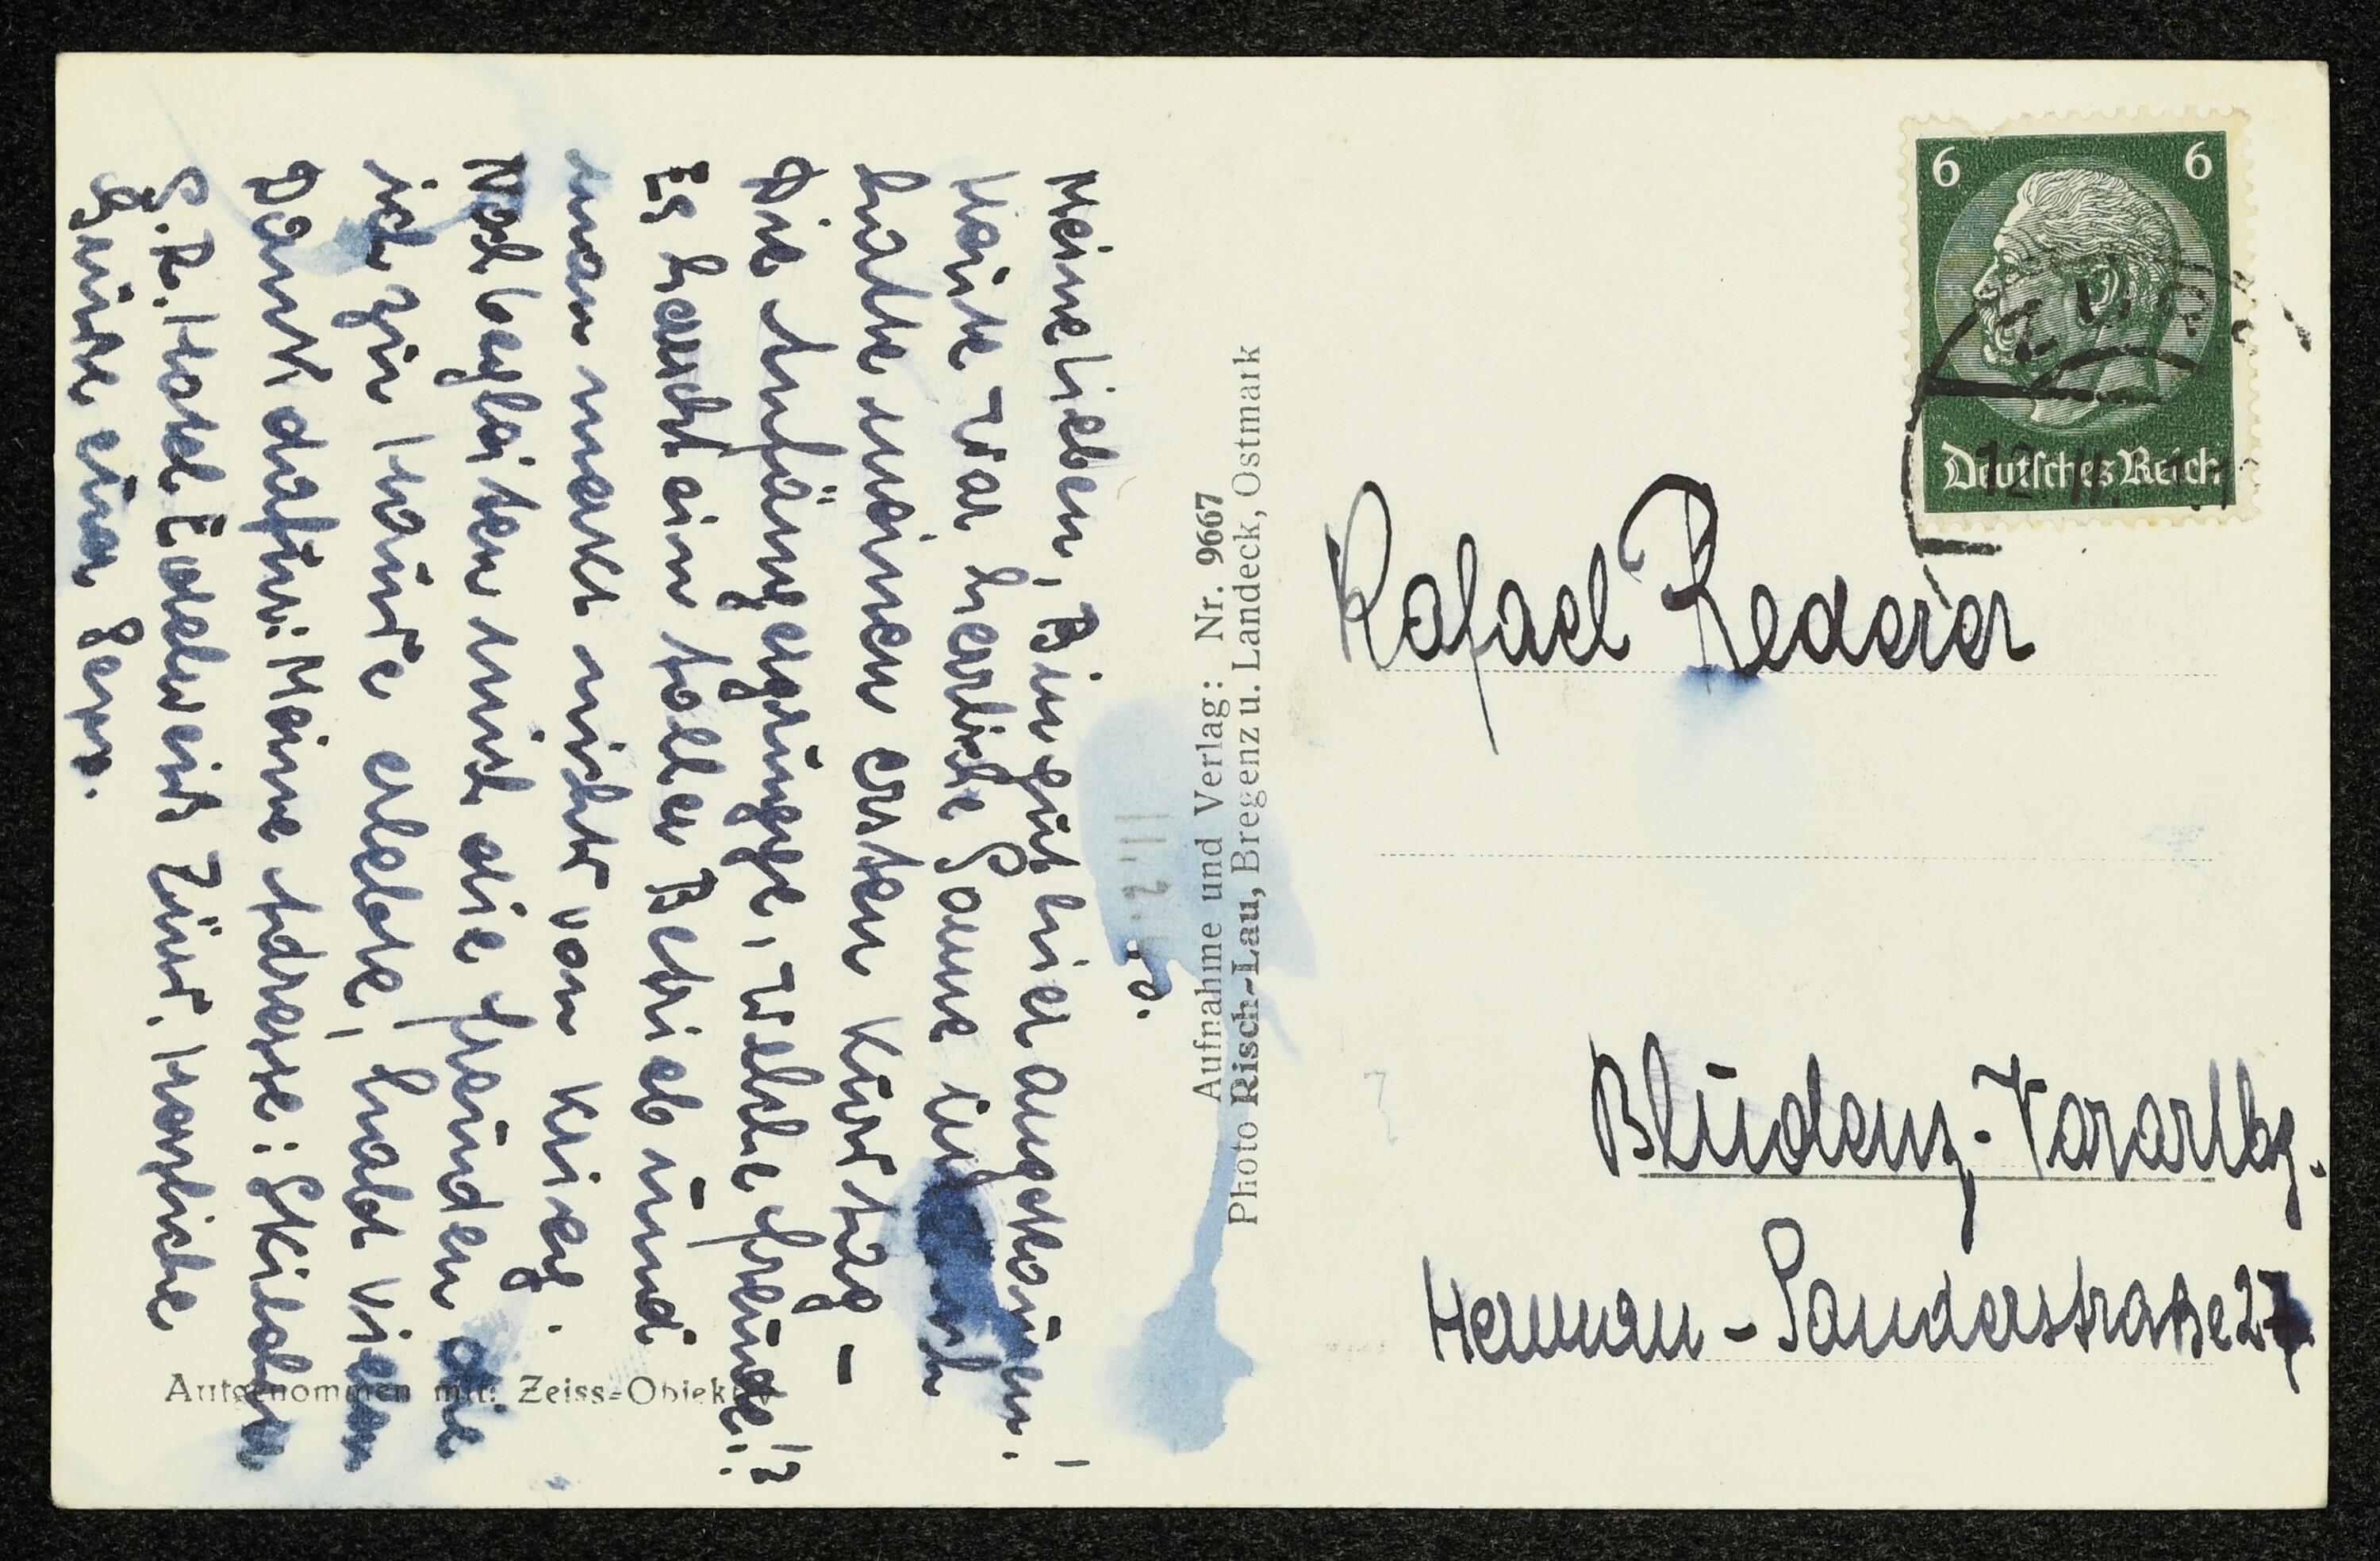 11.2.
Meine Lieben, Bin gut hier angekommen.
Heute war herrliche Sonne
hatte meinen ersten Kurstag -
Die Anfängergruppe, welche Freude!?
Es herrscht ein toller Betrieb und
man merkt nichts vom Krieg.
Noch begleiten mich die Freuden die
ich zu Hause erlebte, habt vielen
Dank dafür. Meine Adresse: Skilehrer
G.R. Hotel Edelweiß Zürs. Herzliche
Grüsse euer Germ.
Aufnahme und Verlag: Nr. 9667
Photo Risch-Lau, Bregenz u. Landeck, Ostmark
Aufgenommen mit: Zeiss-Objektiv
6 6
Deutsches Reich
12. II.
Rafael Rederer
Bludenz-Vorarlbg.
Hermann-Sanderstraße 27